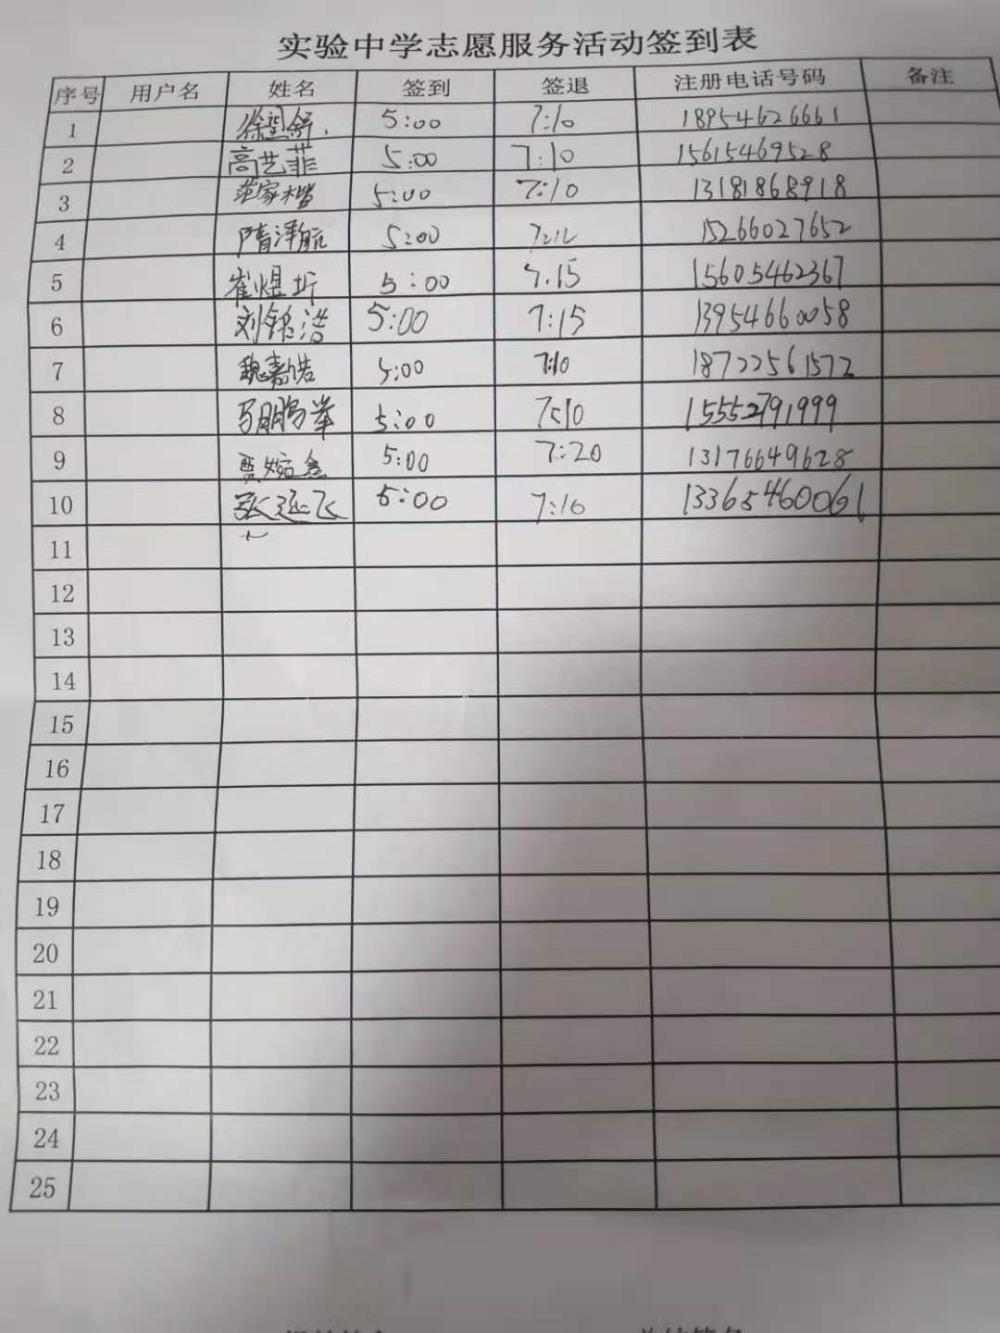 实验中学志愿服务活动签到表
序号 用户名 姓名 签到 签退 注册电话号码 备注
1 5:00 7:10 18954626661
2 高艺菲 5:00 7:10 15615469528
3 范家楷 5:00 7:10 13181868918
4 隋泽航 5:00 7:12 15266027652
5 崔煜圻 5:00 7.15 15605462367
6 刘铭浩 5:00 7:15 13954660058
7 魏嘉皓 5:00 7:10 18722561572
8 马鹏举 5:00 7:10 15552791999
9 5:00 7:20 13176649628
10 张延飞 5:00 7:10 13365460061
11
12
13
14
15
16
17
18
19
20
21
22
23
24
25